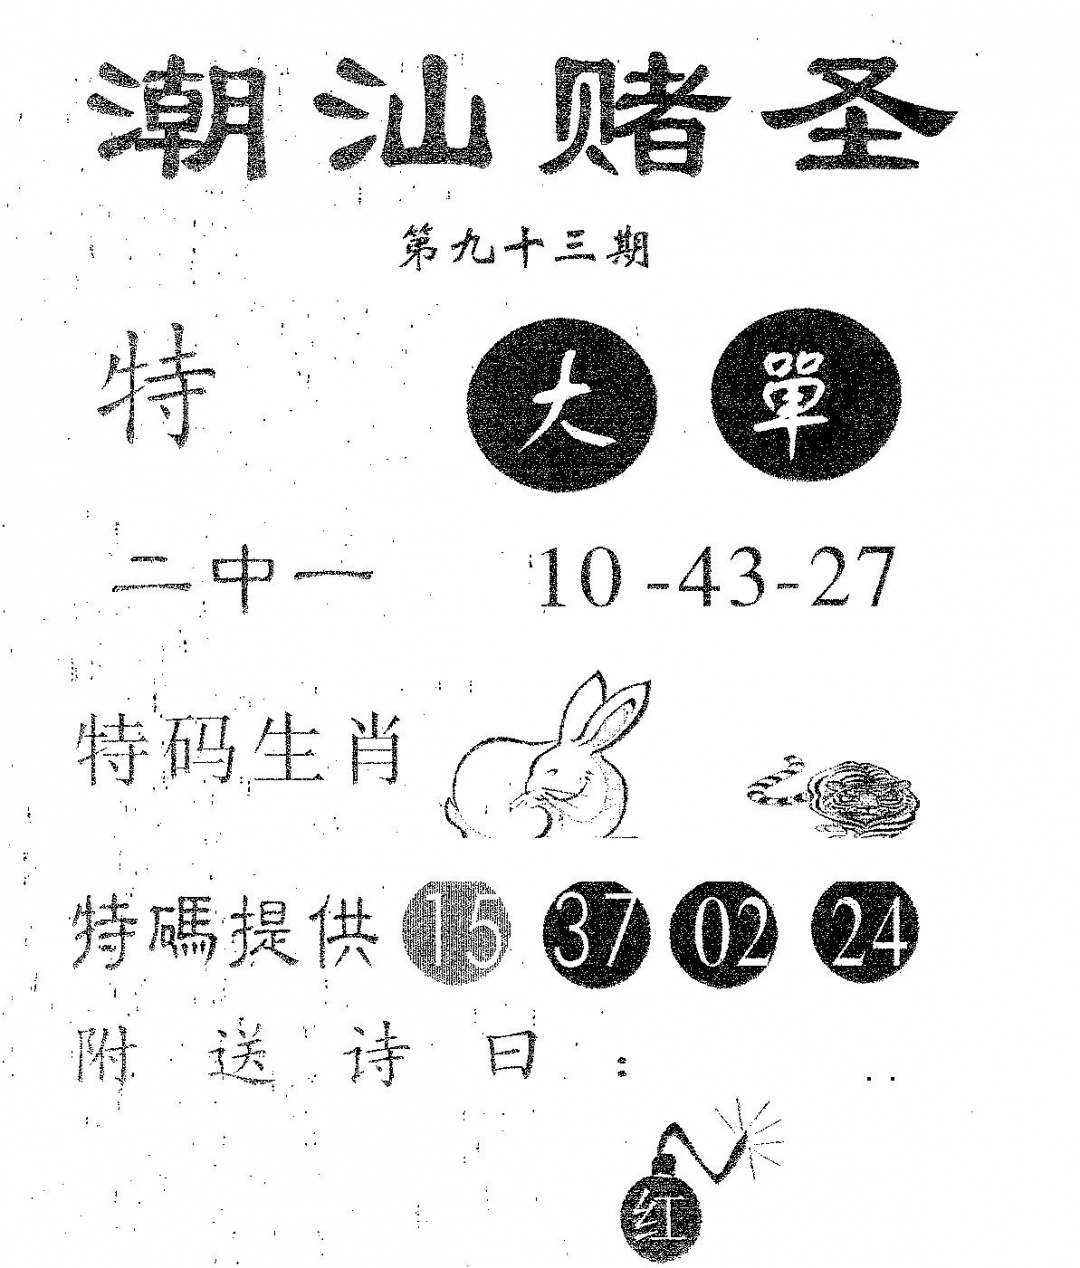 潮汕赌圣
第九十三期
特 大 單
二中一 10-43-27
特码生肖
特碼提供 15 37 02 24
附送诗曰：
红